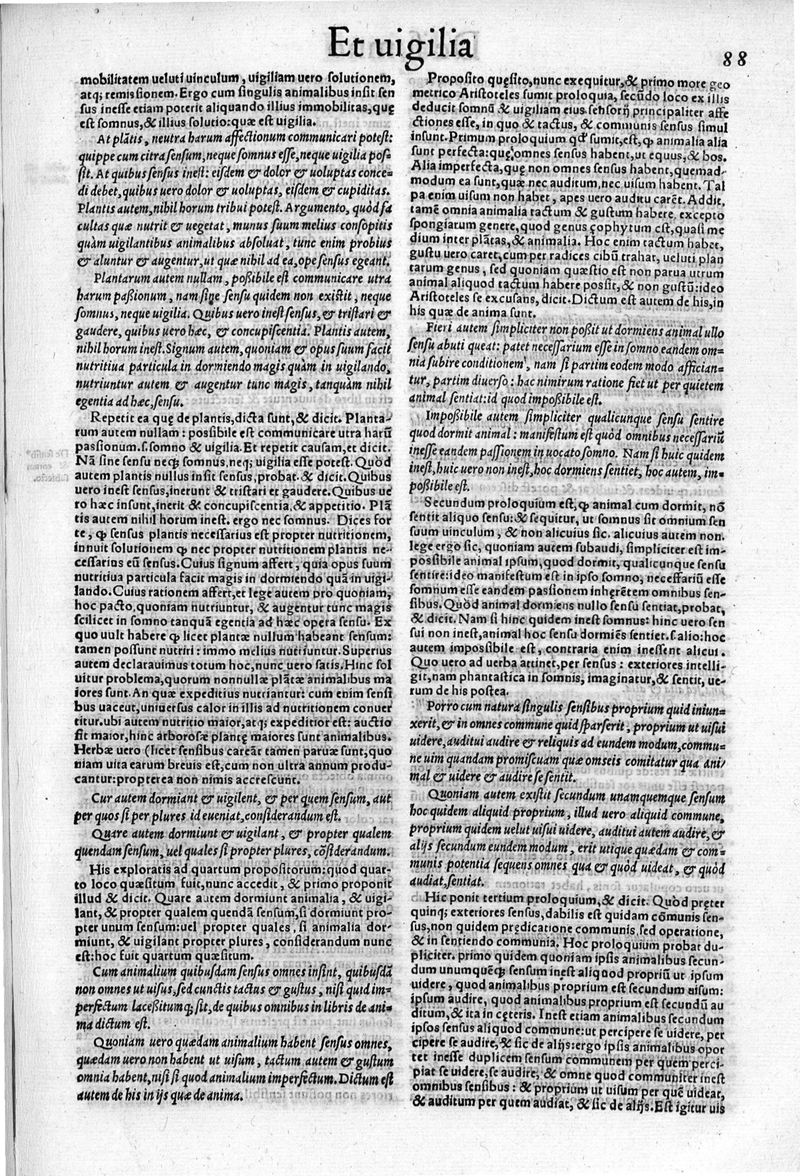 Et uigilia
88
mobilitatem ueluti uinculum, uigiliam uero solutionem,
atq; remissionem. Ergo cum singulis animalibus insit sen
sus inesse etiam poterit aliquando illius immobilitas, quę
est somnus, & illius solutio: quæ est uigilia.
At plātis, neutra harum affectionum communicari potest:
quippe cum citra sensum, neque somnus esse, neque uigilia pos-
sit. At quibus sensus inest: eisdem & dolor & uoluptas conce-
di debet, quibus uero dolor & uoluptas, eisdem & cupiditas.
Plantis autem, nihil horum tribui potest. Argumento, quòd fa
cultas quæ nutrit & uegetat, munus suum melius consopitis
quàm uigilantibus animalibus absoluat, tunc enim probius
& aluntur & augentur, ut quæ nihil ad ea, ope sensus egeant.
Plantarum autem nullam, poßibile est communicare utra
harum paßionum, nam sine sensu quidem non existit, neque
somnus, neque uigilia. Quibus uero inest sensus, & tristari et
gaudere, quibus uero hæc, & concupiscentia. Plantis autem,
nihil horum inest. Signum autem, quoniam & opus suum facit
nutritiua particula in dormiendo magis quàm in uigilando,
nutriuntur autem & augentur tunc magis, tanquàm nihil
egentia ad hæc, sensu.
Repetit ea quę de plantis, dicta sunt, & dicit. Planta-
rum autem nullam: possibile est communicare utra harū
passionum. s. somno & uigilia. Et repetit causam, et dicit.
Nā sine sensu neq; somnus, neq; uigilia esse potest. Quòd
autem plantis nullus insit sensus, probat. & dicit. Quibus
uero inest sensus, inerunt & tristari et gaudere. Quibus ue
ro hæc insunt, inerit & concupiscentia, & appetitio. Plā
tis autem nihil horum inest. ergo nec somnus. Dices for
te, ꝙ sensus plantis necessarius est propter nutritionem,
innuit solutionem ꝙ nec propter nutritionem plantis ne-
cessarius eū sensus. Cuius signum affert, quia opus suum
nutritiua particula facit magis in dormiendo quā in uigi-
lando. Cuius rationem affert, et lege autem pro quoniam,
hoc pacto, quoniam nutriuntur, & augentur tunc magis
scilicet in somno tanquā egentia ad hæc opera sensu. Ex
quo uult habere ꝙ licet plantæ nullum habeant sensum:
tamen possunt nutriri: immo melius nutriuntur. Superius
autem declarauimus totum hoc, nunc uero satis. Hinc sol
uitur problema, quorum nonnullæ plātæ animalibus ma
iores sunt. An quæ expeditius nutriantur: cum enim sensi
bus uacent, uniuersus calor in illis ad nutritionem conuer
titur. ubi autem nutritio maior, atq; expeditior est: auctio
fit maior, hinc arborosæ plantę maiores sunt animalibus.
Herbæ uero (licet sensibus careāt tamen paruæ sunt, quo
niam uita earum breuis est, cum non ultra annum produ-
cantur: propterea non nimis accrescunt.
Cur autem dormiant & uigilent, & per quem sensum, aut
per quos si per plures id eueniat, considerandum est.
Quare autem dormiunt & uigilant, & propter qualem
quendam sensum, uel quales si propter plures, cōsiderandum.
His exploratis ad quartum propositorum: quod quar-
to loco quæsitum fuit, nunc accedit, & primo proponit
illud & dicit. Quare autem dormiunt animalia, & uigi-
lant, & propter qualem quendā sensum, si dormiunt pro-
pter unum sensum: uel propter quales, si animalia dor-
miunt, & uigilant propter plures, considerandum nunc
est: hoc fuit quartum quæsitum.
Cum animalium quibusdam sensus omnes insint, quibusdā
non omnes ut uisus, sed cunctis tactus & gustus, nisi quid im-
perfectum laceßitumq; sit, de quibus omnibus in libris de ani-
ma dictum est.
Quoniam uero quædam animalium habent sensus omnes,
quædam uero non habent ut uisum, tactum autem & gustum
omnia habent, nisi si quod animalium imperfectum. Dictum est
autem de his in ijs quæ de anima.
Proposito quęsito, nunc exequitur, & primo more geo
metrico Aristoteles sumit proloquia, secūdo loco ex illis
deducit somnū & uigiliam eius sēsorij principaliter affe
ctiones esse, in quo & tactus, & communis sensus simul
insunt. Primum proloquium qđ sumit, est, ꝙ animalia alia
sunt perfecta: quę omnes sensus habent, ut equus, & bos.
Alia imperfecta, quę non omnes sensus habent, quemad-
modum ea sunt, quæ nec auditum, nec uisum habent. Tal
pa enim uisum non habet, apes uero auditu carēt. Addit,
tamē omnia animalia tactum & gustum habere, excepto
spongiarum genere, quod genus ζοφητυμ est, quasi me
dium inter plātas, & animalia. Hoc enim tactum habet,
gustu uero caret, cum per radices cibū trahat, ueluti plan
tarum genus, sed quoniam quæstio est non parua utrum
animal aliquod tactum habere possit, & non gustū: ideo
Aristoteles se excusans, dicit. Dictum est autem de his, in
his quæ de anima sunt.
Fieri autem simpliciter non poßit ut dormiens animal ullo
sensu abuti queat: patet necessarium esse in somno eandem om-
nia subire conditionem, nam si partim eodem modo affician-
tur, partim diuerso: hac nimirum ratione fiet ut per quietem
animal sentiat: id quod impoßibile est.
Impoßibile autem simpliciter qualicunque sensu sentire
quod dormit animal: manifestum est quòd omnibus necessariū
inesse eandem passionem in uocato somno. Nam si huic quidem
inest, huic uero non inest, hoc dormiens sentiet, hoc autem, im-
poßibile est.
Secundum proloquium est, ꝙ animal cum dormit, nō
sentit aliquo sensu: & sequitur, ut somnus sit omnium sen
suum uinculum, & non alicuius sic. alicuius autem non.
lege ergo sic, quoniam autem subaudi, simpliciter est im-
possibile animal ipsum, quod dormit, qualicunque sensu
sentire: ideo manifestum est in ipso somno, necessariū esse
somnum esse eandem passionem inhęrētem omnibus sen-
sibus. Quòd animal dormiens nullo sensu sentiat, probat,
& dicit. Nam si hinc quidem inest somnus: hinc uero sen
sui non inest, animal hoc sensu dormiēs sentiet. s. alio: hoc
autem impossibile est, contraria enim inessent alicui.
Quo uero ad uerba attinet, per sensus: exteriores intelli-
git, nam phantastica in somnis, imaginatur, & sentit, ue-
rum de his postea.
Porro cum natura singulis sensibus proprium quid iniun-
xerit, & in omnes commune quid sparserit, proprium ut uisui
uidere, auditui audire & reliquis ad eundem modum, commu-
ne uim quandam promiscuam quæ omseis comitatur qua ani-
mal & uidere & audire se sentit.
Quoniam autem existit secundum unamquemque sensum
hoc quidem aliquid proprium, illud uero aliquid commune,
proprium quidem uelut uisui uidere, auditui autem audire, &
alijs secundum eundem modum, erit utique quædam & com-
munis potentia sequens omnes qua & quòd uideat, & quòd
audiat, sentiat.
Hic ponit tertium proloquium, & dicit. Quòd pręter
quinq; exteriores sensus, dabilis est quidam cōmunis sen-
sus, non quidem prędicatione communis, sed operatione,
& in sentiendo communia. Hoc proloquium probat du-
pliciter. primo quidem quoniam ipsis animalibus secun-
dum unumquēq; sensum inest aliquod propriū ut ipsum
uidere, quod animalibus proprium est secundum uisum:
ipsum audire, quod animalibus proprium est secundū au
ditum, & ita in cęteris. Inest etiam animalibus secundum
ipsos sensus aliquod commune: ut percipere se uidere, per
cipere se audire, & sic de alijs: ergo ipsis animalibus opor
tet inesse duplicem sensum communem per quem perci-
piat se uidere, se audire, & omne quod communiter inest
omnibus sensibus: & proprium ut uisum per quē uideat,
& auditum per quem audiat, & sic de alijs. Est igitur uis